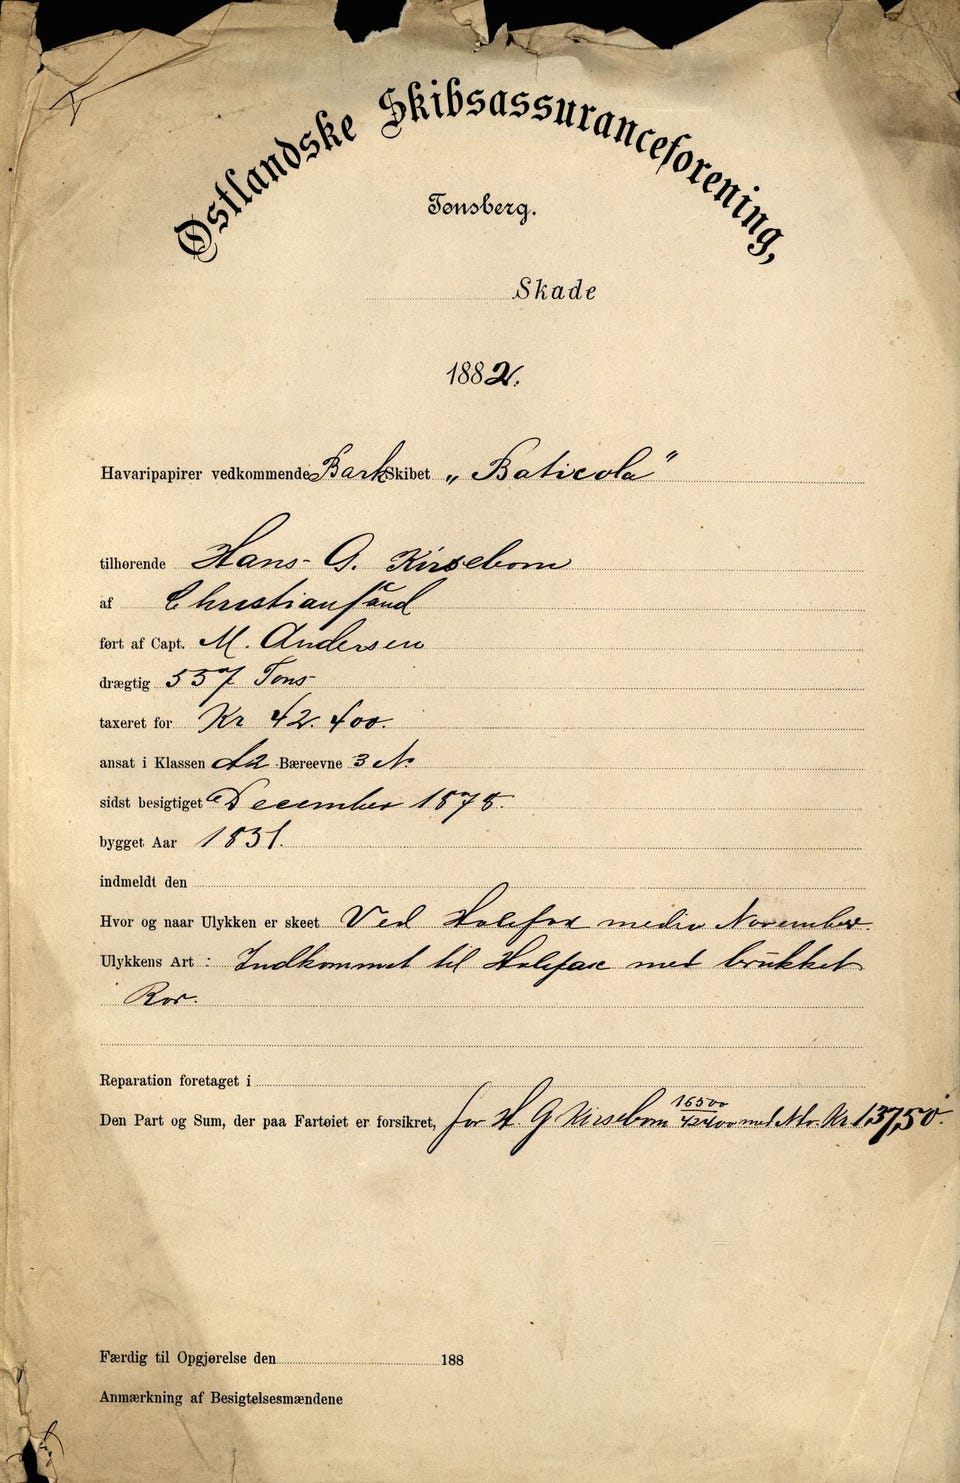 Østlandske Skibsassuranceforening,
Tønsberg.
Skade
1882.
Havaripapirer vedkommende Barkskibet „Baticola"
tilhørende Hans G. Kirsebom
af Christiansand
ført af Capt. M. Andersen
drægtig 537 Tons
taxeret for Kr 42.400.
ansat i Klassen A2 Bæreevne 3 N.
sidst besigtiget December 1878.
bygget Aar 1851.
indmeldt den
Hvor og naar Ulykken er skeet Ved Halifax medio November.
Ulykkens Art : Indkommet til Halifax med brukket
Ror.
Reparation foretaget i
Den Part og Sum, der paa Fartøiet er forsikret, for H. G Kirsebom 16500/42400 med Kr. 13750.
Færdig til Opgjørelse den 188
Anmærkning af Besigtelsesmændene